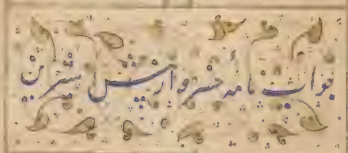 جواب نامه خسرو از پیش شیرین